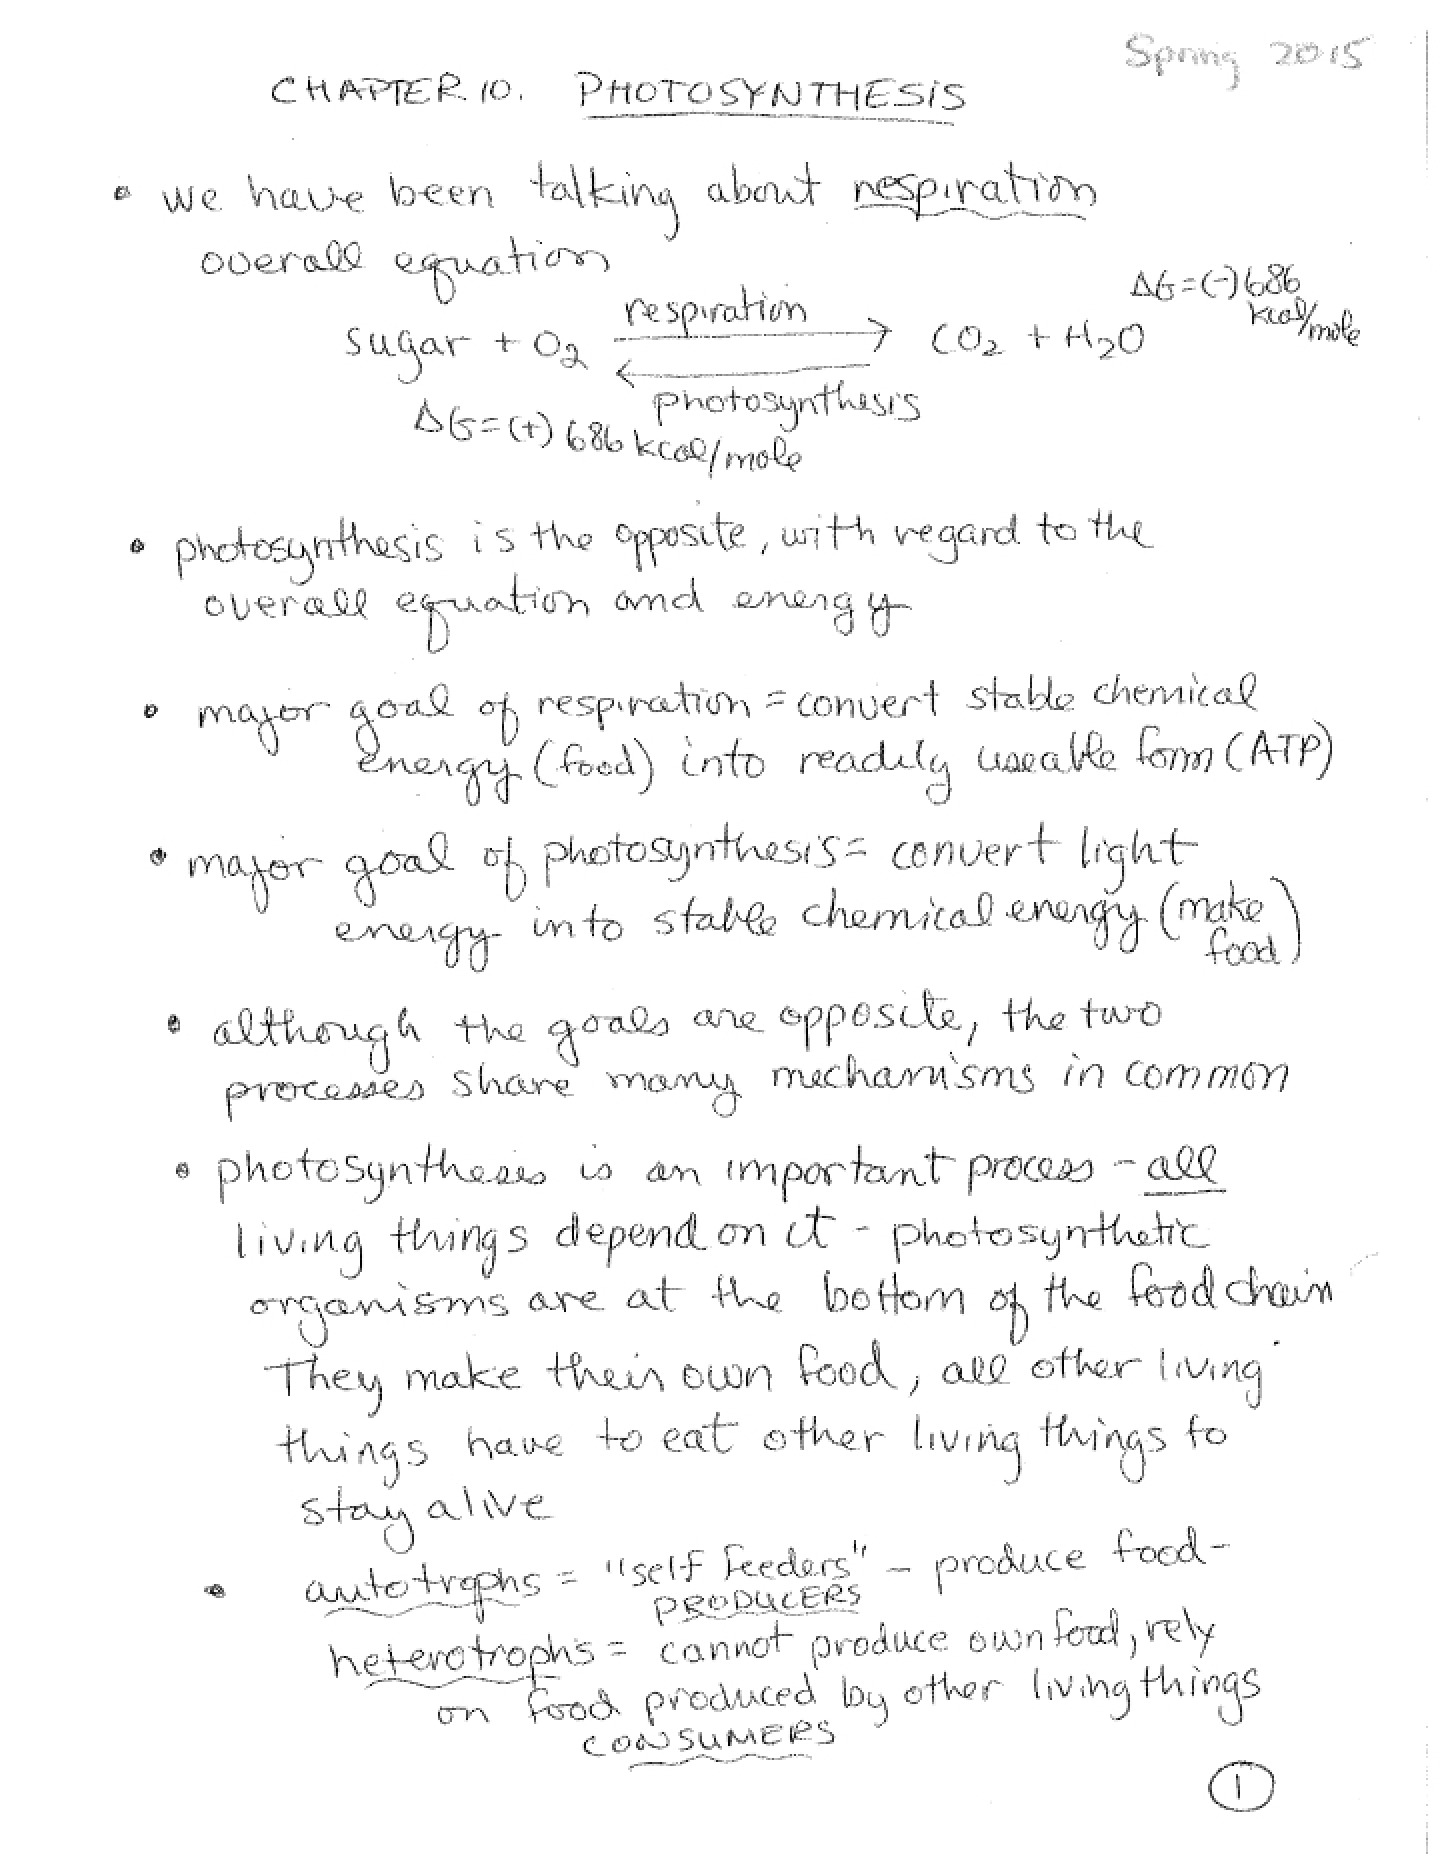 Spring 2015
CHAPTER 10. PHOTOSYNTHESIS
• we have been talking about respiration
overall equation
sugar + O₂ respiration → CO₂ + H₂O ΔG = (-) 686 kcal/mole
← photosynthesis
ΔG = (+) 686 kcal/mole
• photosynthesis is the opposite, with regard to the
overall equation and energy
• major goal of respiration = convert stable chemical
energy (food) into readily useable form (ATP)
• major goal of photosynthesis = convert light
energy into stable chemical energy (make
food)
• although the goals are opposite, the two
processes share many mechanisms in common
• photosynthesis is an important process - all
living things depend on it - photosynthetic
organisms are at the bottom of the food chain
They make their own food, all other living
things have to eat other living things to
stay alive
• autotrophs = "self feeders" - produce food -
PRODUCERS
heterotrophs = cannot produce own food, rely
on food produced by other living things
CONSUMERS
1